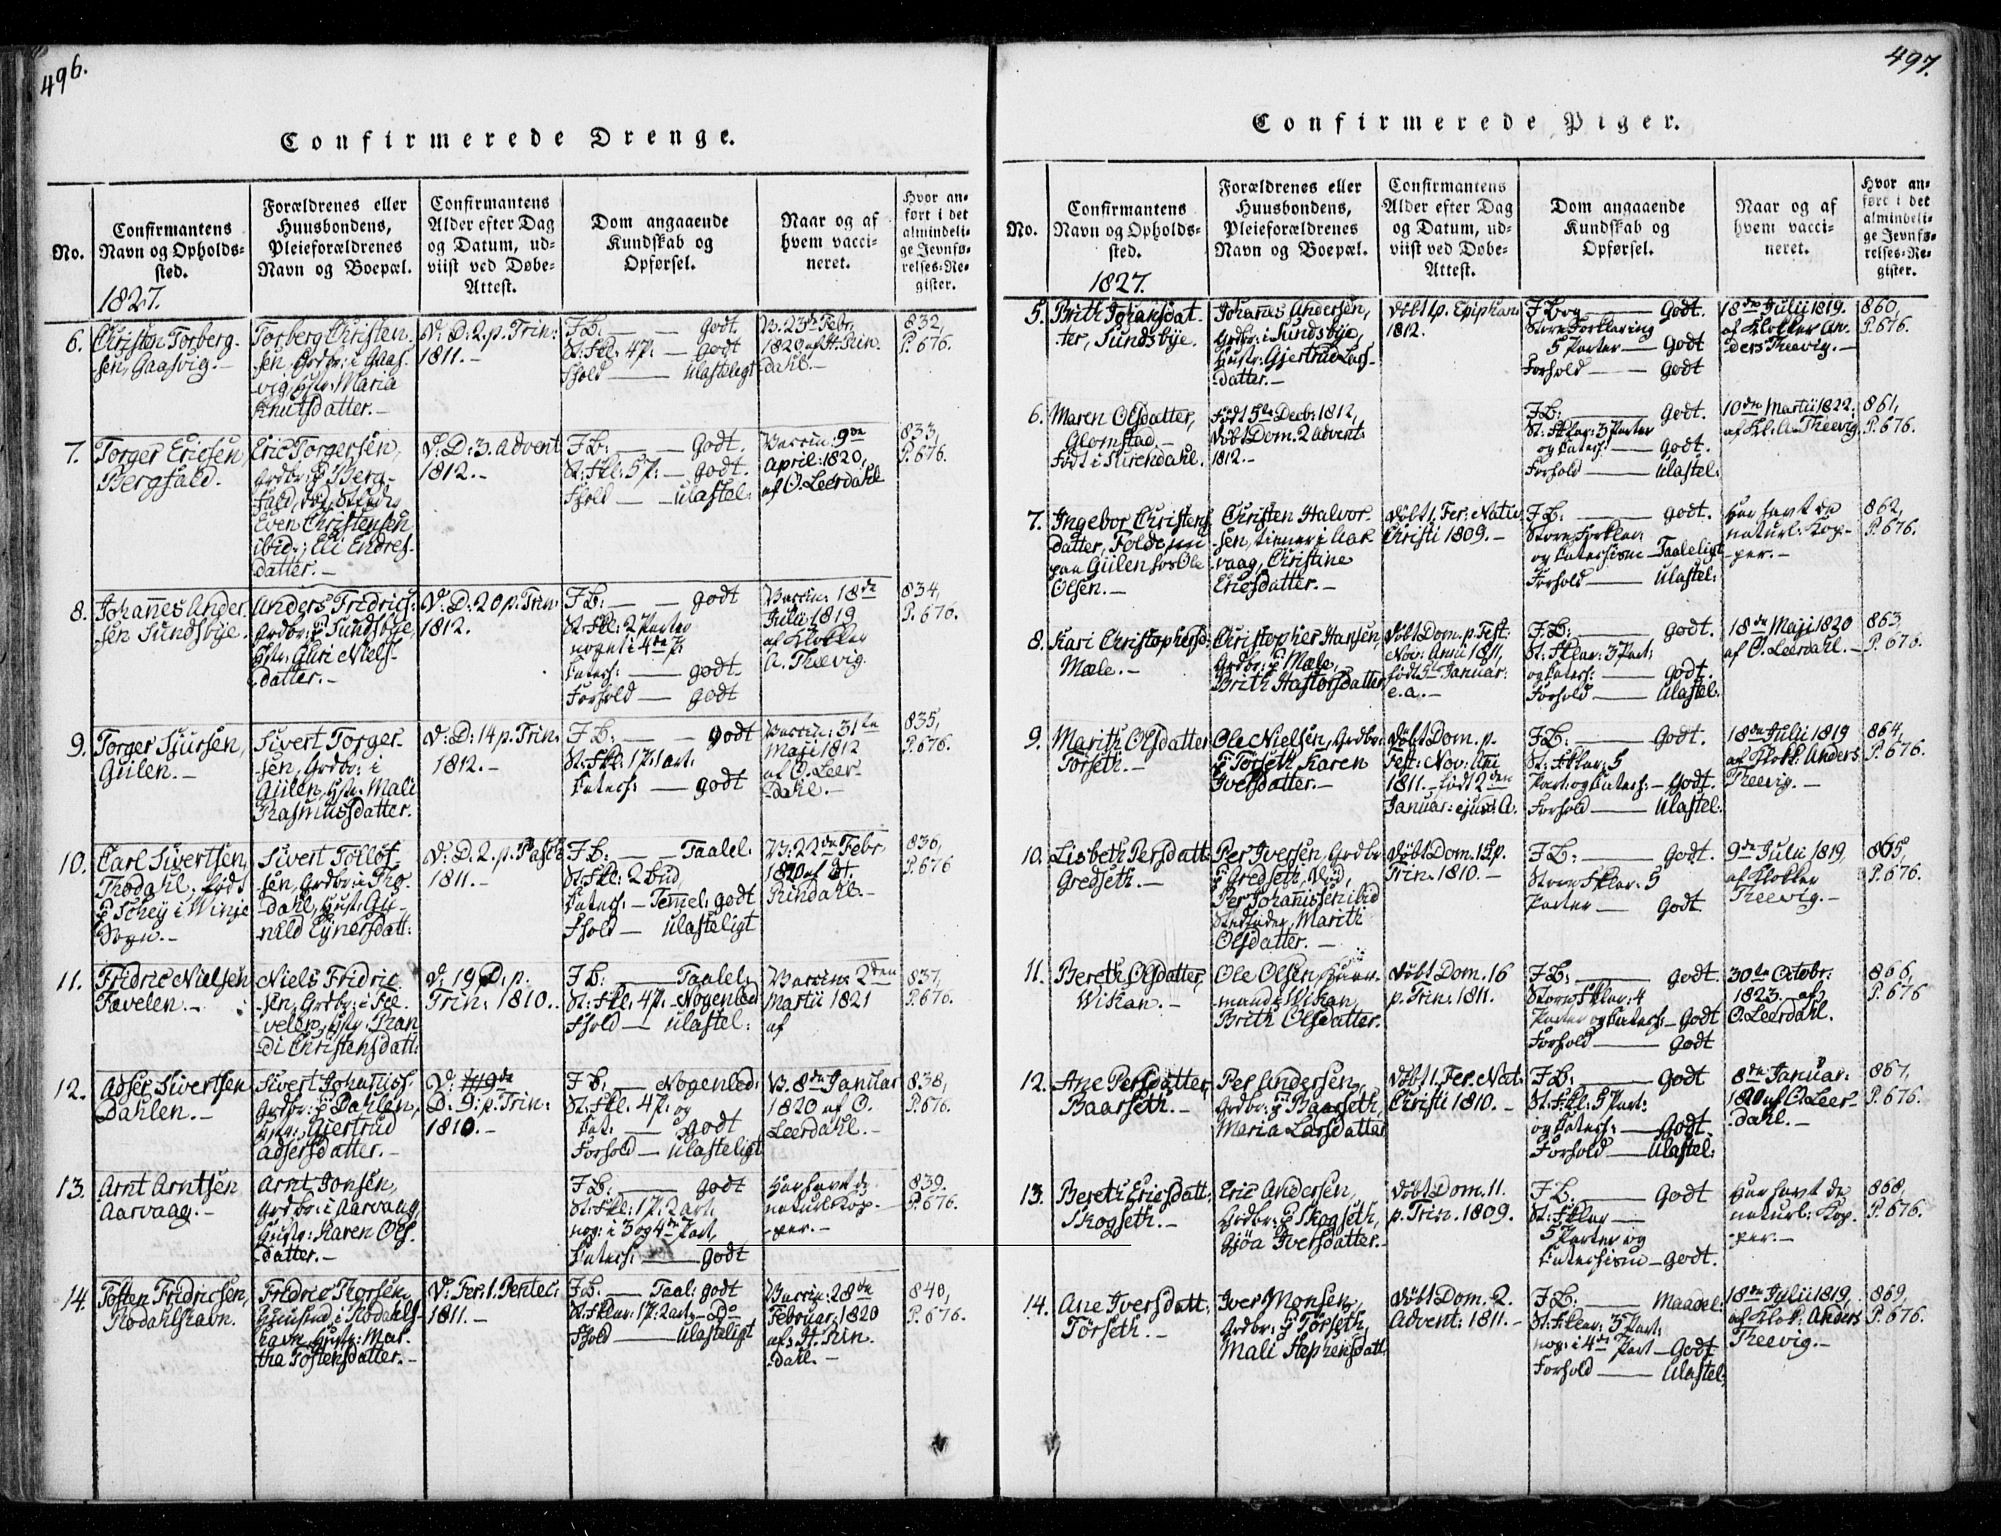 496.
Confirmerede Drenge.
No.
Confirmantens
Navn og Opholds-
sted.
1827.
Forældrenes eller
Huusbondens,
Pleieforældrenes
Navn og Boepæl.
Confirmantens
Alder efter Dag
og Datum, ud-
viist ved Døbe-
Attest.
Dom angaaende
Kundskab og
Opførsel.
Naar og af
hvem vacci-
neret.
Hvor an-
ført i det
almindeli-
ge Jevnfø-
relses-Re-
gister.
6.
Christen Torberg-
sen, Gaasvig.-
Torberg Christen-
sen, Grdbr: i Gaas-
vig, Hstr: Maria
Knutsdatter.-
V: D: 2. p. Trin:
1811.-
F. B: godt.
St: Fkl: 4 P: godt
Fhold ulasteligt
V: 23de Febr.
1820 af H. Rin-
dahl.-
832,
P. 676.
7.
Torger Ericsen,
Bergfald.
Eric Torgersen,
Grdbr: p Berg-
fald,
Even Christensen
ibid:; Eli Endres-
datter.-
V: D: 3. Advent
1812.-
F. B: Godt.
St: Fkl: 5 P: godt.
Fhold ulastel:
Vaccin: 9de
April: 1820,
af O. Leerdahl
833,
P. 676.
8.
Johannes Ander-
sen Sundsbye.
Anders Fridrics:
Grdbr: p Sundsbye,
Hstr: Guri Niels-
datter.-
V: D: 20 p. Trin:
1812.
F. B: godt
St: Fkl: 2 Parter
noget i 4de P:
Catech: godt
Forhold godt
Vaccin: 18de
Julii 1819
af Klokker
A. Thevig.
834,
P. 676.
9.
Torger Sjursen,
Giilen.-
Sivert Torger-
sen, Grdbr: i
Giilen, Hstr: Mali
Rasmusdatter.
V: D: 14 p. Trin:
1812.-
F. B: godt
St: Fkl: 1 P: 1 art:
Catech: godt
Vaccin: 31te
Maji 1812
af O. Leer-
dahl.-
835,
P. 676.
10.
Carl Sivertsen,
Thodahl, Født
p Schey i Winje
Sogn.-
Sivert Tollof-
sen, Grdbr: i Tho-
dahl, Hust: Gu-
nild Ejnersdatt:
V: D. 2. p. Paske
1811.-
F. B: Taalel:
St: Fkl: 2 bud
Catech: Temmel: godt
Fhold ulasteligt
V: 22de Febr.
1820 af H.
Rindahl.-
836,
P. 676
11.
Fridric Nielsen
Fævelen.-
Niels Fridric-
sen, Grdbr: i Fæ-
velen, Hstr: Ran-
di Christensdatt:
V: 19 D. p.
Trin: 1810..
F. B: Taalel:
St: Fkl: 4 P. Nogenled
Fhold ulastel:
Vaccin: 2den
Martii 1821
af
837,
P. 676.
12.
Adser Sivertsen
Dahlen.-
Sivert Johannss:
Grdbr: p Dahlen,
Hstr: Gjertrud
Adsersdatter.-
D: 9: p. Trin:
1810.-
F. B: Nogenled:
St: Fkl: 4 P: og
Cat: godt
Forhold ulasteligt
V. 8de Januar
1820 af O.
Leerdahl.-
838,
P. 676.
13.
Arnt Arntsen
Aarvaag.-
Arnt Jonsen,
Grdbr: i Aarvaag,
Hustr: Karen Ols-
datter.-
F. B: godt
St: Fklr: 1 P: 2 art.
nog: i 3 og 4de Part,
Catech: godt
Har havt d:
naturl. Kop-
per.-
839.
P. 676.
14.
Tosten Fridricsen,
Rodahlshavn.
Fridric Thorsen,
Huusmd, i Rodahls-
havn, Hustr: Mar-
tha Tostensdatter.-
V: Fer. 1. Pentec:
1811.-
F. B. Taal: godt
St: Fklar: 1 P: 2 art Do
Fhold Ulasteligt
Vaccin: 28de
Februar: 1820
af H. Rin-
dahl.-
840,
P. 676.
497.
Confirmerede Piger.
No.
Confirmantens
Navn og Opholds-
sted.
1827.
Forældrenes eller
Huusbondens,
Pleieforældrenes
Navn og Boepæl.
Confirmantens
Alder efter Dag
og Datum, ud-
viist ved Døbe-
Attest.
Dom angaaende
Kundskab og
Opførsel.
Naar og af
hvem vacci-
neret.
Hvor an-
ført i det
almindeli-
ge Jevnfø-
relses-Re-
gister.
5.
Brith Johansdat-
ter, Sundsbye.
Johannes Andersen,
Grdbr: i Sundsbye,
Hustr: Gjertrud Lars-
datter.-
Døbt 1 p. Epiphan:
1812.
F. Bog Godt.
Store Forklaring
5 Parter Godt
Forhold Godt
18de Julii 1819.
af Klokker An-
ders Theevig.-
860,
P. 676.
6.
Maren Olsdatter,
Glomstad.-
Født i Surendahl.
Født 5te Decbr: 1812,
Døbt Dom. 2 Advent:
1812.-
F. B: Godt.
St: Fklar: 3 Parter
og Catech: Godt.
Forhold Ulastel:
10de Martii 1822.
af Kl: A. Theevig.
861,
P. 676.
7.
Ingebor Christens-
datter, Folde
paa Giilen hos Ole
Olsen.-
Christen Halvor-
sen, tiener i Aar-
vaag, Christine
Ericsdatter.-
Døbt 1. Fer: Nativ:
Christi 1809.-
F. B: godt.
Store Forklar:
og Catechism Taaleligt
Forhold Ulastel:
Har havt de
naturl: Kop-
per.-
862,
P. 676.
8.
Kari Christophersd:
Mæle.-
Christopher Hansen,
Grdbr: p Mæle,
Brith Hastorsdatter,
Døbt Dom. p. Fest:
Nov: Anni 1811,
født 5te Januar:
e. a.-
F. B: godt.
St: Fklar: 3 Part:
og Catech: godt.
Forhold Ulastel:
18de Maji 1820
af O. Leerdahl.-
863,
P. 676.
9.
Marith Olsdatter
Torseth.-
Ole Nielsen, Grdbr:
p Torseth Karen
Iversdatter.-
Døbt Dom. p.
Fest: Nov: Ani
1811.- født 2den
Januar: ejusd: A.
F. B: Godt.
St: Fklar: 5
Part: og Catech: Godt.
Forhold Ulastel:
18de Julii 1819
af Klok: Anders
Theevig.-
864,
P. 676.
10.
Lisbeth Persdatt:
Gredseth.-
Per Iversen, Grdbr
p Gredseth,
Per Johannissen ibid
Marith
Olsdatter.-
Døbt Dom. 15 p.
Trin. 1810.-
F. B: Godt.
Store Fklar: 5
Parter Godt
9de Julii 1819
af Klokker
Theevig.-
865,
P. 676.
11.
Bereth Olsdatter,
Wikan.-
Ole Olsen, Huus-
mand i Wikan,
Brith Olsdatter.
Døbt Dom. 16
p. Trin. 1811.
F. B: godt.
Store Fklar: 4
Parter og Catech: Godt
Forhold Godt
30te Octobr:
1823. af
O. Leerdahl.
866,
P. 676
12.
Ane Persdatter,
Baarseth.-
Per Andersen,
Grdbr: p Baarseth,
Maria Larsdatter
Døbt 1. Fer: Nat:
Christi 1810.-
F. B: Godt
St: Fkl: 5 Part:
og Catech: Godt.
Forhold Ulastel:
8de Januar:
1820 af O. Leer-
dahl.-
867,
P. 676.
13.
Bereth Ericsdatt:
Skogseth.-
Eric Andersen,
Grdbr: p Skogseth,
Gjøa Iversdatter.-
Døbt Dom. 11.
p. Trin. 1809.
F. B. Godt
St: Fklar
5 Parter og
Catechism Godt.
Har havt de
naturl: Kop-
per.-
868,
P. 676.
14.
Ane Iversdatt:
Torseth.-
Iver Monsen,
Grdbr: p Torseth,
Mali Stephensdatt:
Døbt Dom. 2.
Advent: 1811.-
F. B: Maadel:
St: Fklar: 3 Part:
nog: i 4de Part Godt
Forhold Ulastel:
18de Julii 1819,
af Klok: Anders
Theevig.-
869,
P. 676.